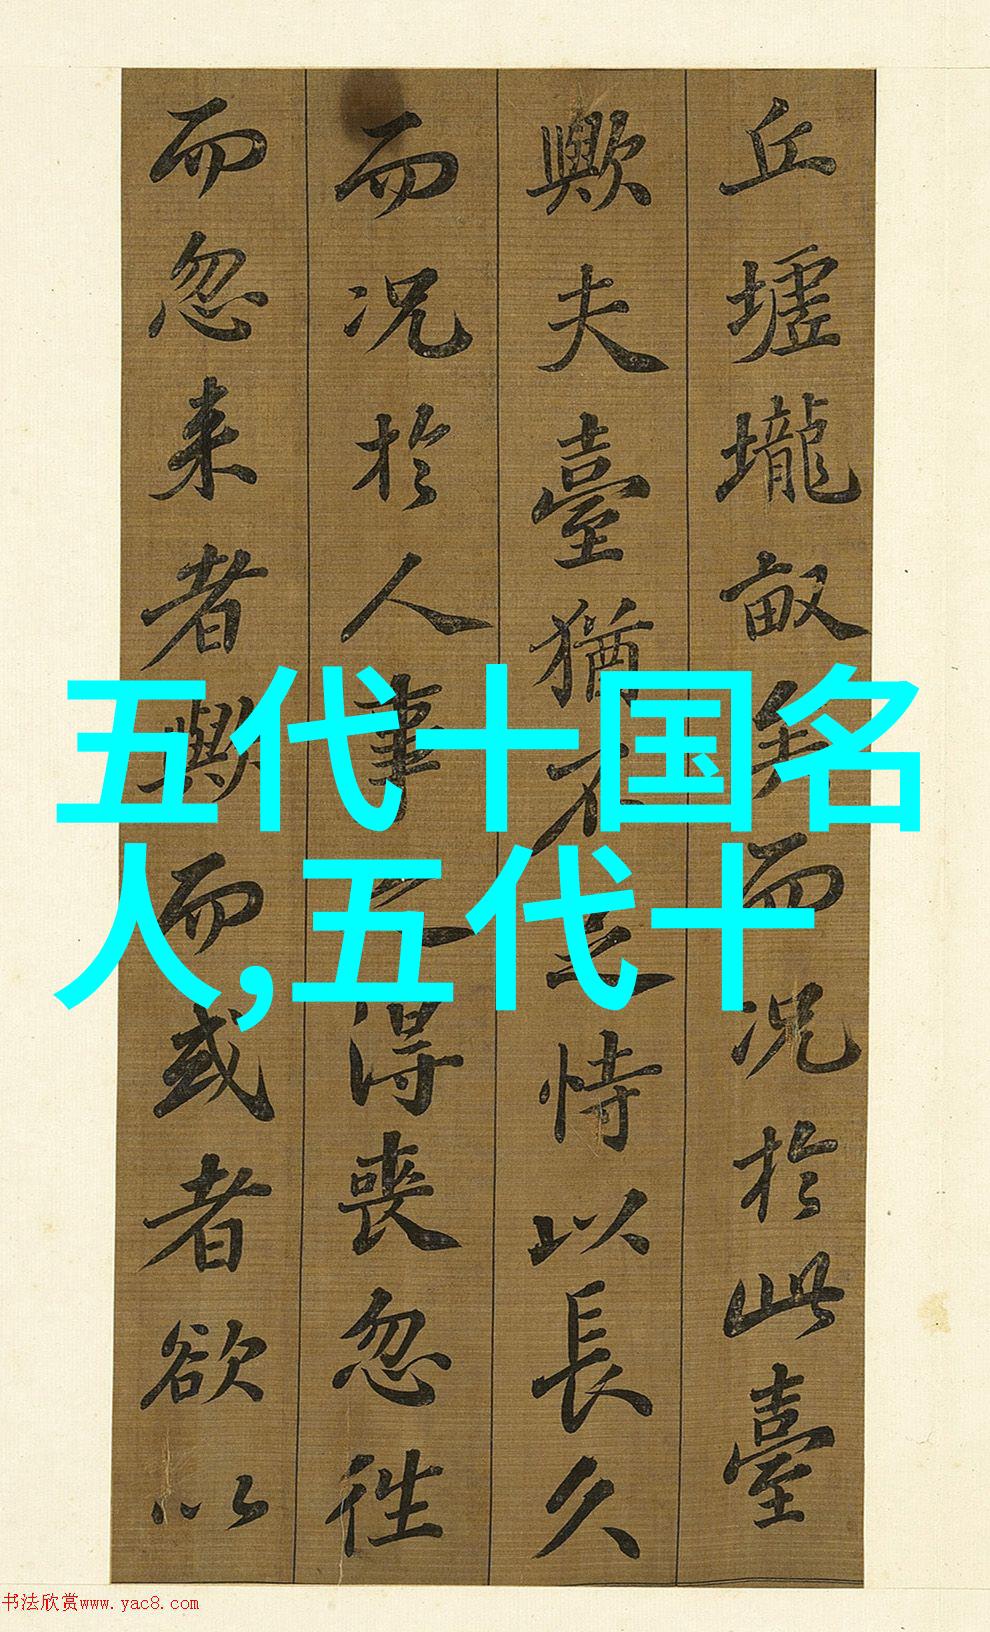 丘墟壠畝矣而况於此臺
歟夫臺猶不足恃以長久
而况於人事之得喪忽往
而忽来者歟而或者欲以
五代十国名
人,五代十
书法欣赏www.yac8.com